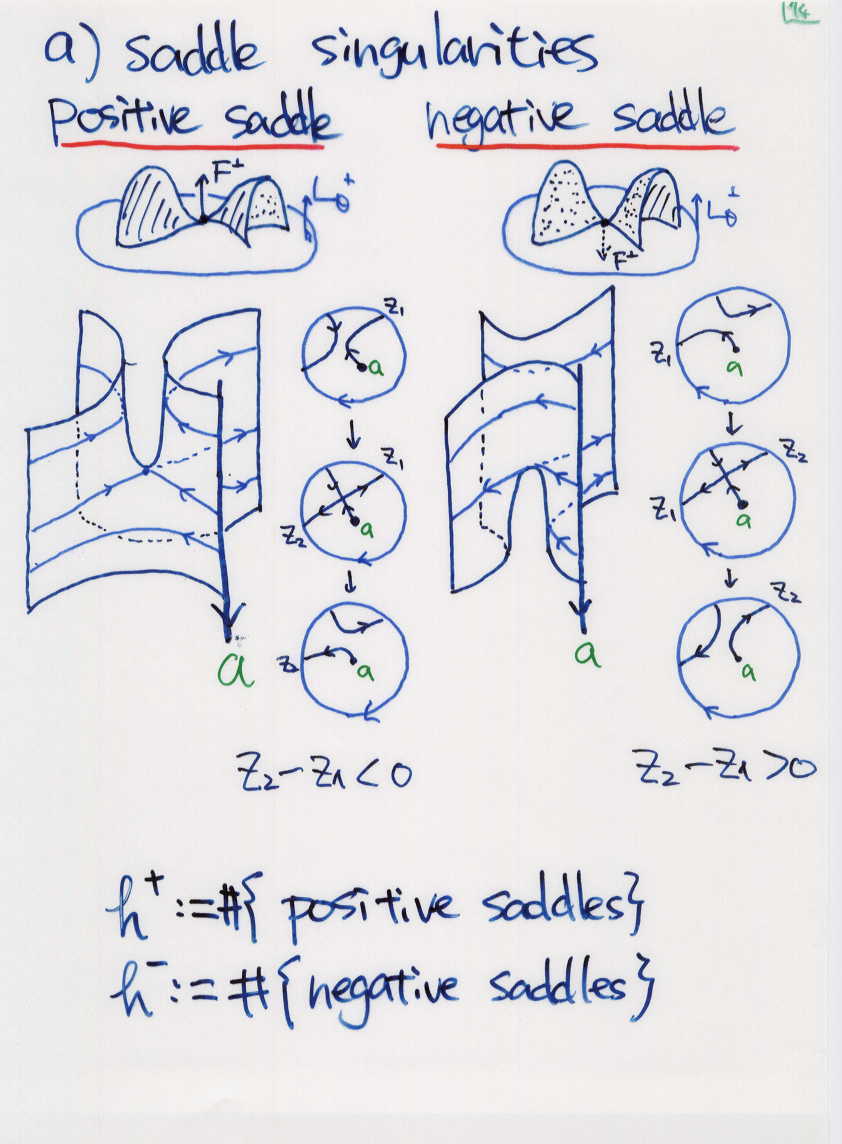 14
a) saddle singularities
positive saddle
negative saddle
F⊥
Lθ+
F⊥
Lθ⊥
z1
a
z1
z2
a
z2
a
a
z1
a
z2
z1
a
z2
a
a
z2-z1<0
z2-z1>0
h+:=#{positive saddles}
h-:=#{negative saddles}